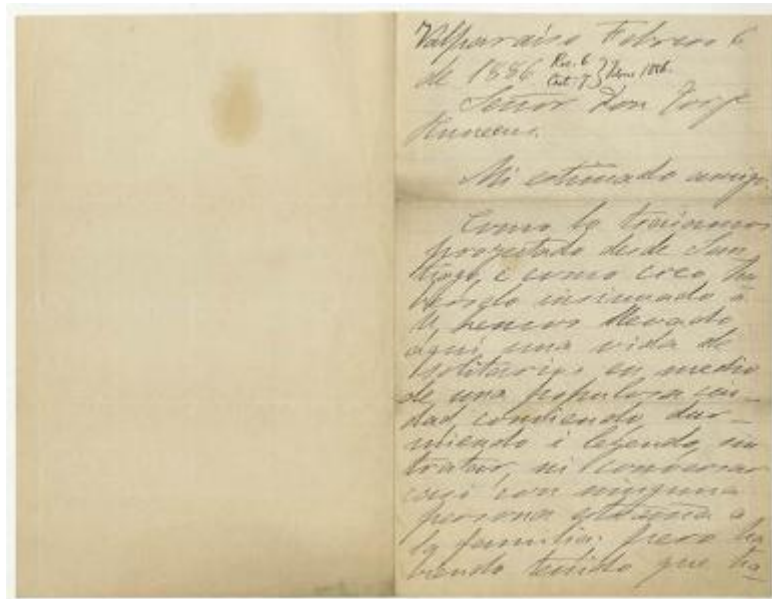 Valparaiso Febrero 6
de 1886 Rec. 6 Cont. 7 } Febrero 1886.
Señor Don Jorje
Huneeus.
Mi estimado amigo.
Como lo traiamos
proyectado desde San
tiago, e como creo ha
berselo insinuado á
U, hemos llevado
aqui una vida de
solitarios en medio
de una populosa ciu-
dad comiendo dur-
miendo i leyendo, sin
tratar, ni conversar
casi con ninguna
persona estraña a
la familia; pero ha
biendo tenido que ha-